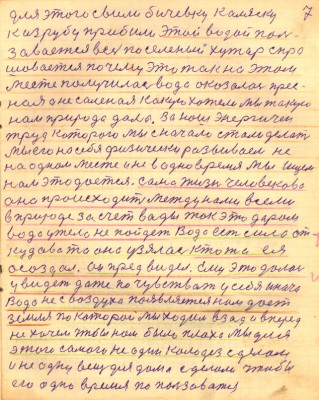 7
для этого свили бичевку каляску
к изрубу прибили этой водой пол
зовается вся поселеный хутар спро
шовается почему это так на этом
месте получилас вода оказалас прес-
ная а не саленая какую хотем мы такую
нам природа дала. За наш энергичен
труд которого мы сначало стали делат
мы его на себя физически развываем не
на одном месте и не в одно время мы ищем
нам это дается. сама жизн человекова
она происходит между нами всеми
в природе за счет вады так это даром
вода у тело не пойдет вода ест сила от
куда вато она узялас кто та ея
осоздал. он предвидел. Ему это долог
увидет даже по чувстват у себя иного
вода не с воздуха появляется нам дает
земля по которой мы ходим взад и вперед
не хочем чтобы нам было плахо мы для
этого самого не один колодез сделали
и не одну вещ для дома сделали чтобы
его одно время по ползоватся